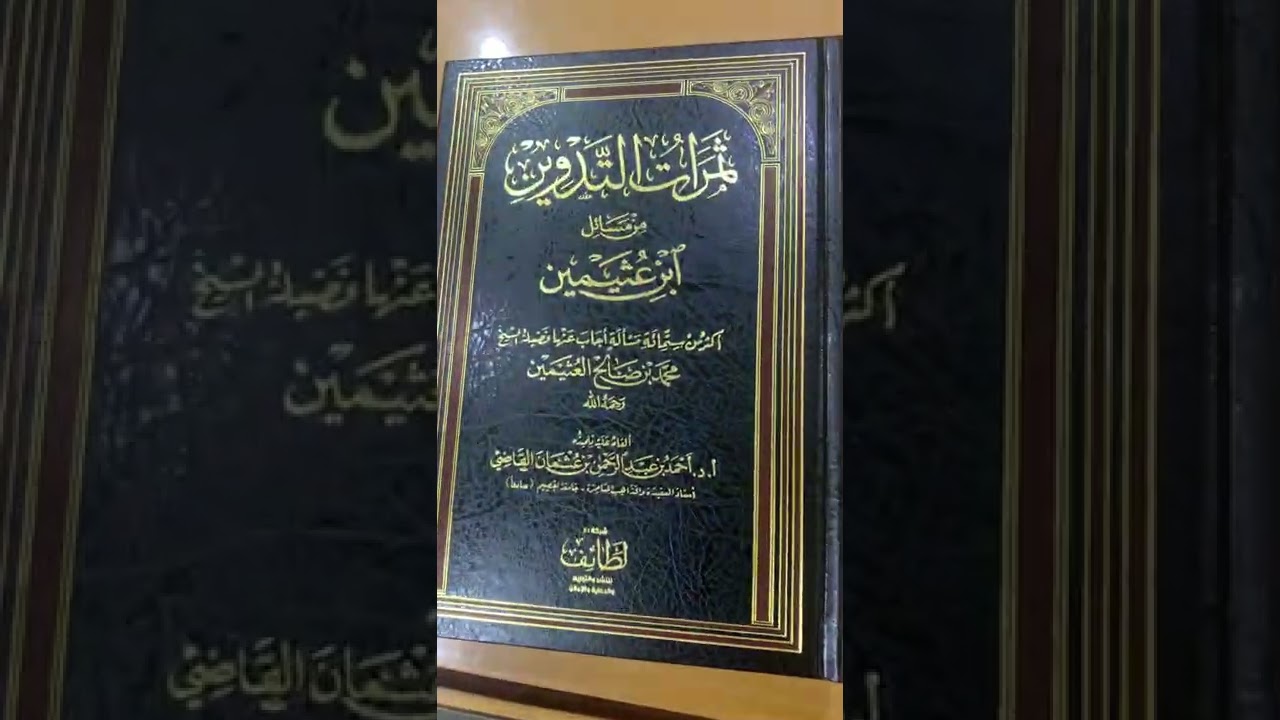 ثَمَرَاتُ التَّدْوِينِ
مِنْ مَسَائِل
ابْنِ عُثَيْمَين
أكثر من ستمائة مسألة أجاب عنها فضيلة الشيخ
محمد بن صالح العُثَيْمَين
رحمه الله
ألقاها عليه تلميذه
أ. د. أحمد بن عبد الرحمن بن عثمان القاضي
أستاذ العقيدة والمذاهب المعاصرة - جامعة القصيم (سابقاً)
شركة
لطائف
لنشر الكتب